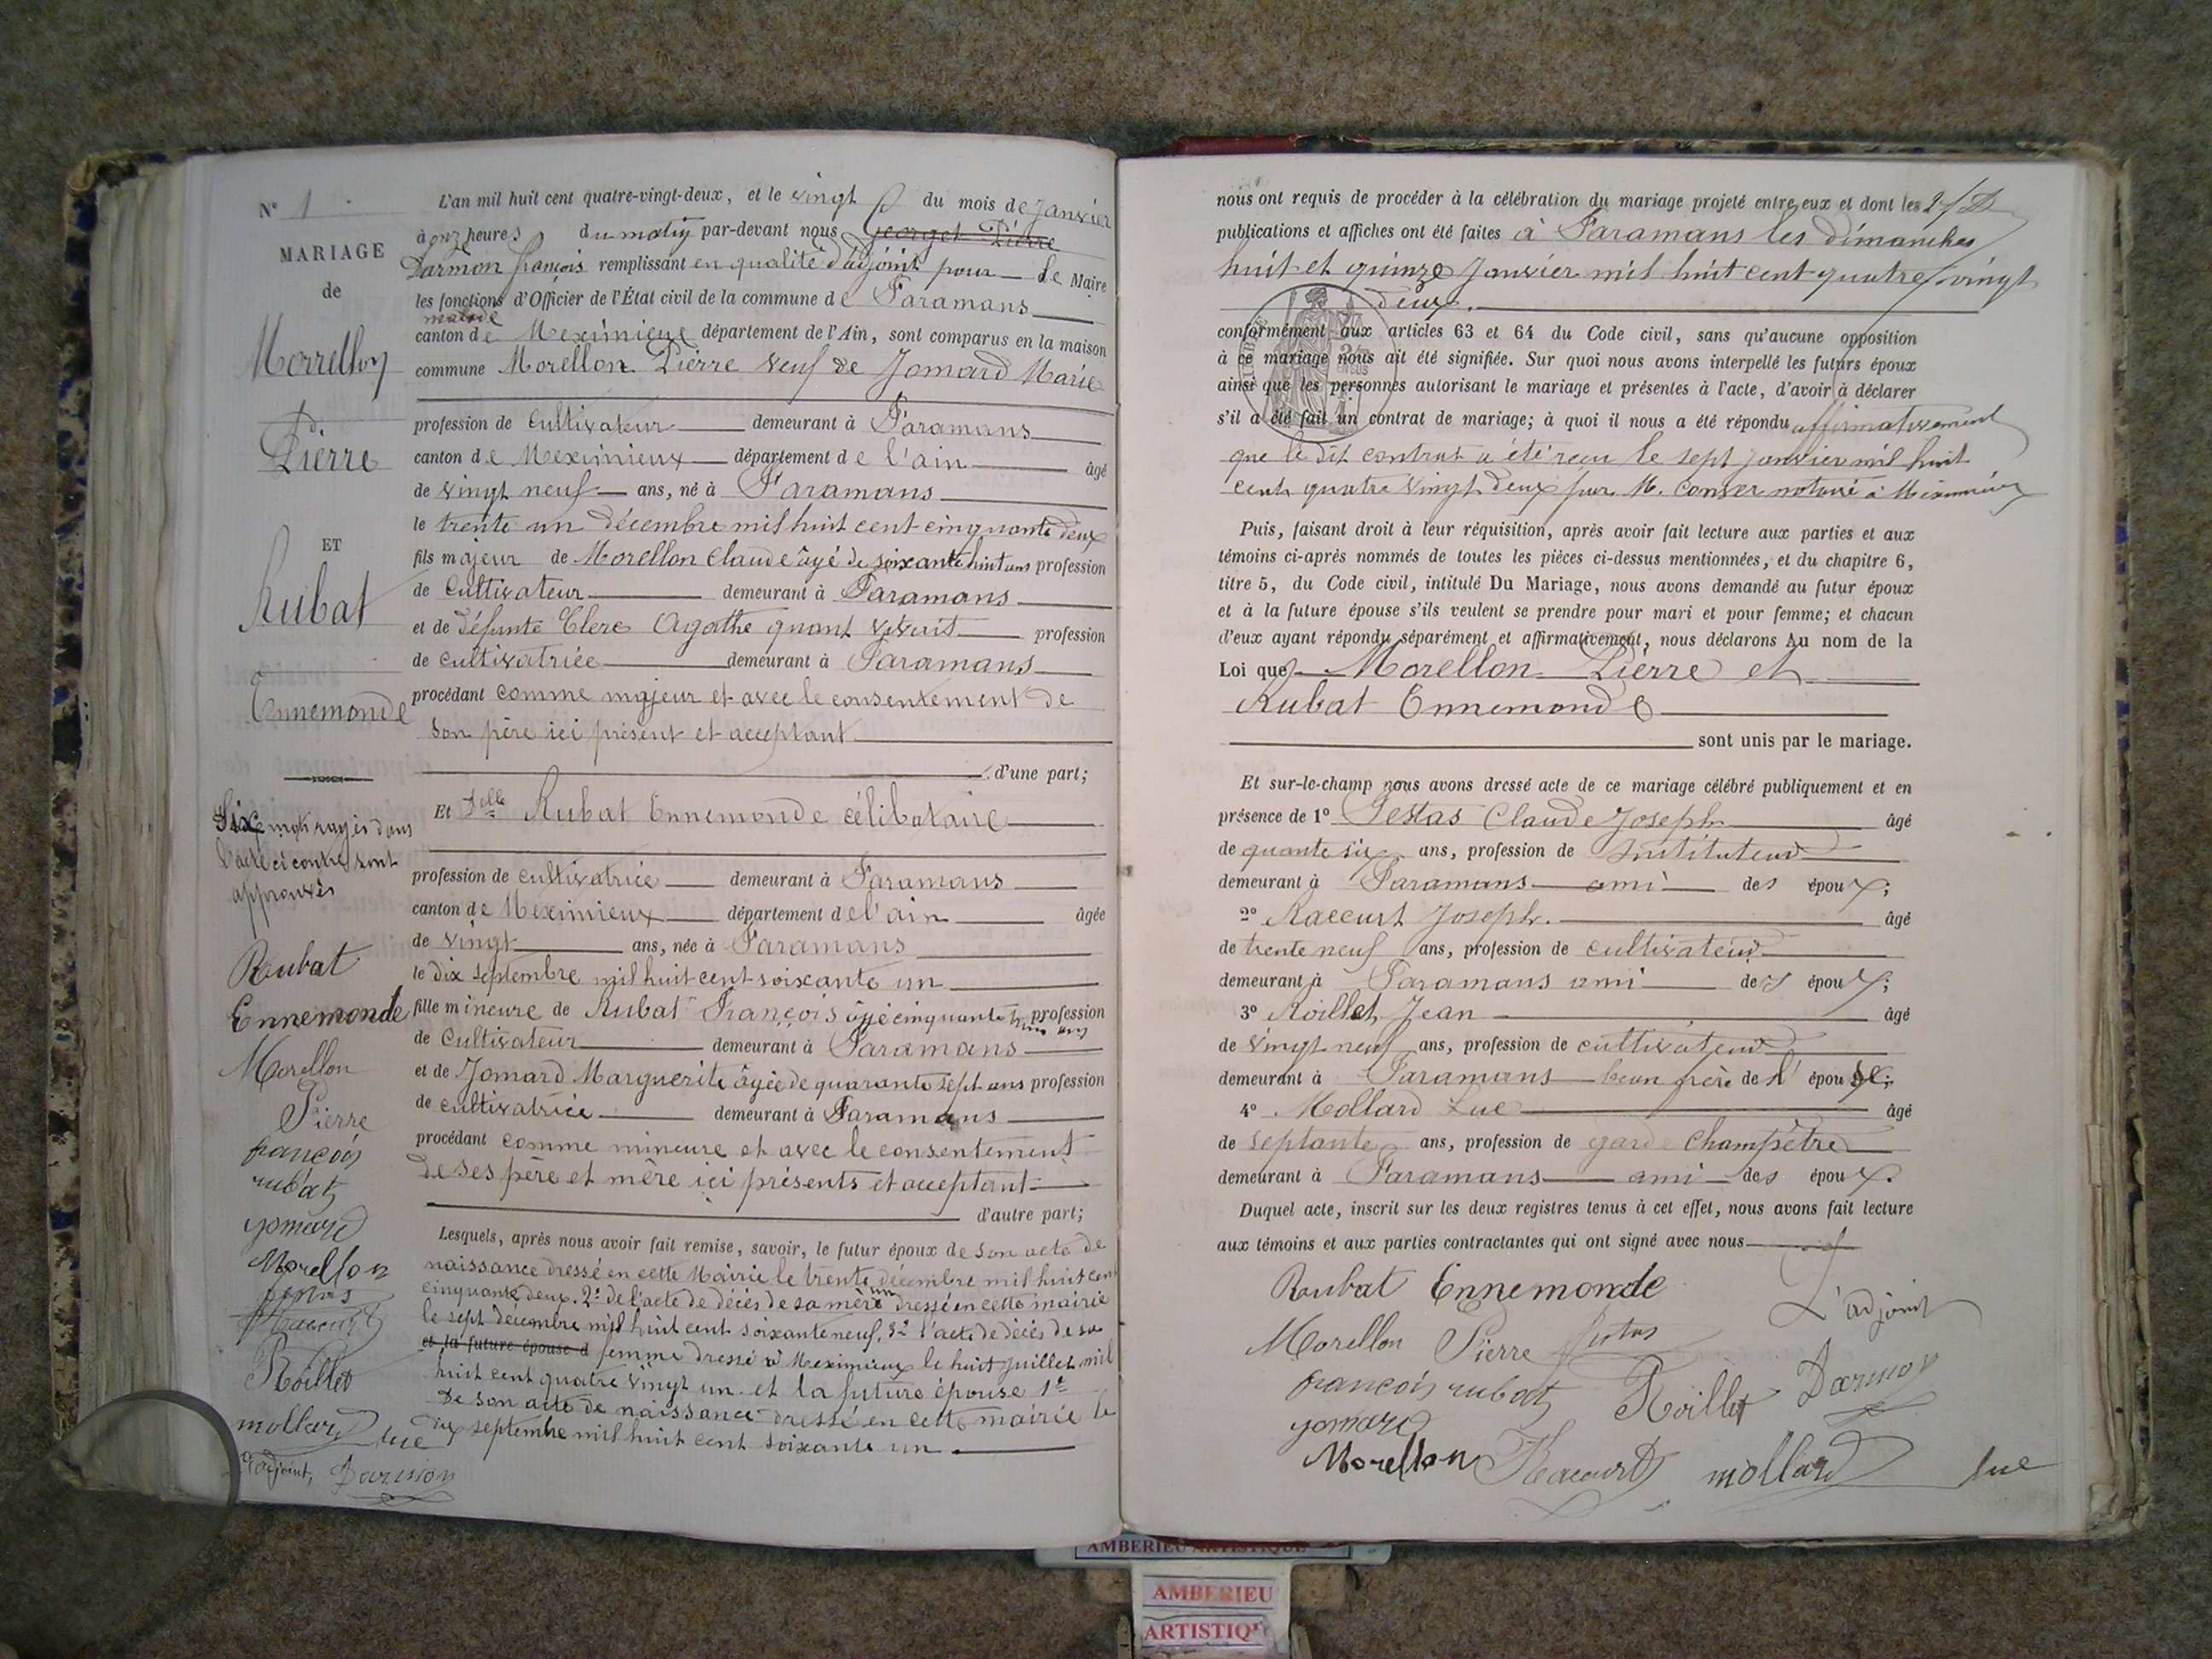 N° 1
MARIAGE
de
Morrellon
Pierre
ET
Rubat
Ennemonde
Six mots rayés dans
l'acte ci contre sont
approuvés
Rubat
Ennemonde
Morellon
Pierre
françois
rubat
yomard
Morellon
Racourt
Roillet
mollard luc
l'adjoint, Darmon
L'an mil huit cent quatre-vingt-deux, et le vingt du mois de Janvier
à onze heures du matin par-devant nous Georget Pierre
Darmon françois remplissant en qualité d'adjoint pour le Maire
les fonctions d'Officier de l'État civil de la commune de Faramans
malade
canton de Meximieux département de l'Ain, sont comparus en la maison
commune Morellon Pierre veuf de Jomard Marie
profession de Cultivateur demeurant à Faramans
canton de Meximieux département de l'ain âgé
de vingt neuf ans, né à Faramans
le trente un décembre mil huit cent cinquante deux
fils majeur de Morellon Claude âgé de soixante huit ans profession
de Cultivateur demeurant à Faramans
et de défunte Clerc Agathe quant vivait profession
de cultivatrice demeurant à Faramans
procédant comme majeur et avec le consentement de
son père ici présent et acceptant
d'une part;
Et Delle Rubat Ennemonde célibataire
profession de cultivatrice demeurant à Faramans
canton de Meximieux département de l'ain âgée
de vingt ans, née à Faramans
le dix septembre mil huit cent soixante un
fille mineure de Rubat François âgé cinquante huit ans profession
de Cultivateur demeurant à Faramans
et de Jomard Marguerite âgée de quarante sept ans profession
de cultivatrice demeurant à Faramans
procédant comme mineure et avec le consentement
de ses père et mère ici présents et acceptant
d'autre part;
Lesquels, après nous avoir fait remise, savoir, le futur époux de son acte de
naissance dressé en cette Mairie le trente un décembre mil huit cent
cinquante deux. 2° de l'acte de décès de sa mère dressé en cette mairie
le sept décembre mil huit cent soixante neuf, 3° l'acte de décès de sa
et la future épouse d femme dressé à Meximieux le huit juillet mil
huit cent quatre vingt un et la future épouse 1°
de son acte de naissance dressé en cette mairie le
dix septembre mil huit cent soixante un
nous ont requis de procéder à la célébration du mariage projeté entre eux et dont les 2
publications et affiches ont été faites à Faramans les dimanches
huit et quinze Janvier mil huit cent quatre vingt
deux.
conformément aux articles 63 et 64 du Code civil, sans qu'aucune opposition
à ce mariage nous ait été signifiée. Sur quoi nous avons interpellé les futurs époux
ainsi que les personnes autorisant le mariage et présentes à l'acte, d'avoir à déclarer
s'il a été fait un contrat de mariage; à quoi il nous a été répondu affirmativement
que le dit contrat a été reçu le sept janvier mil huit
cent quatre vingt deux par M. notaire à Meximieux
Puis, faisant droit à leur réquisition, après avoir fait lecture aux parties et aux
témoins ci-après nommés de toutes les pièces ci-dessus mentionnées, et du chapitre 6,
titre 5, du Code civil, intitulé Du Mariage, nous avons demandé au futur époux
et à la future épouse s'ils veulent se prendre pour mari et pour femme; et chacun
d'eux ayant répondu séparément et affirmativement, nous déclarons Au nom de la
Loi que Morellon Pierre et
Rubat Ennemonde
sont unis par le mariage.
Et sur-le-champ nous avons dressé acte de ce mariage célébré publiquement et en
présence de 1° Festas Claude Joseph âgé
de quante six ans, profession de Instituteur
demeurant à Faramans ami des époux;
2° Raccurt Joseph. âgé
de trente neuf ans, profession de cultivateur
demeurant à Faramans ami des époux;
3° Roillet Jean âgé
de vingt neuf ans, profession de cultivateur
demeurant à Faramans beau frère de l' épouse;
4° Mollard Luc âgé
de septante ans, profession de garde champêtre
demeurant à Faramans ami des époux.
Duquel acte, inscrit sur les deux registres tenus à cet effet, nous avons fait lecture
aux témoins et aux parties contractantes qui ont signé avec nous
Rubat Ennemonde
L'adjoint
Morellon Pierre festas
françois rubat Roillet Darmon
yomard
Morellon Racourt mollard luc
AMBERIEU ARTISTIQUE
AMBERIEU
ARTISTIQ